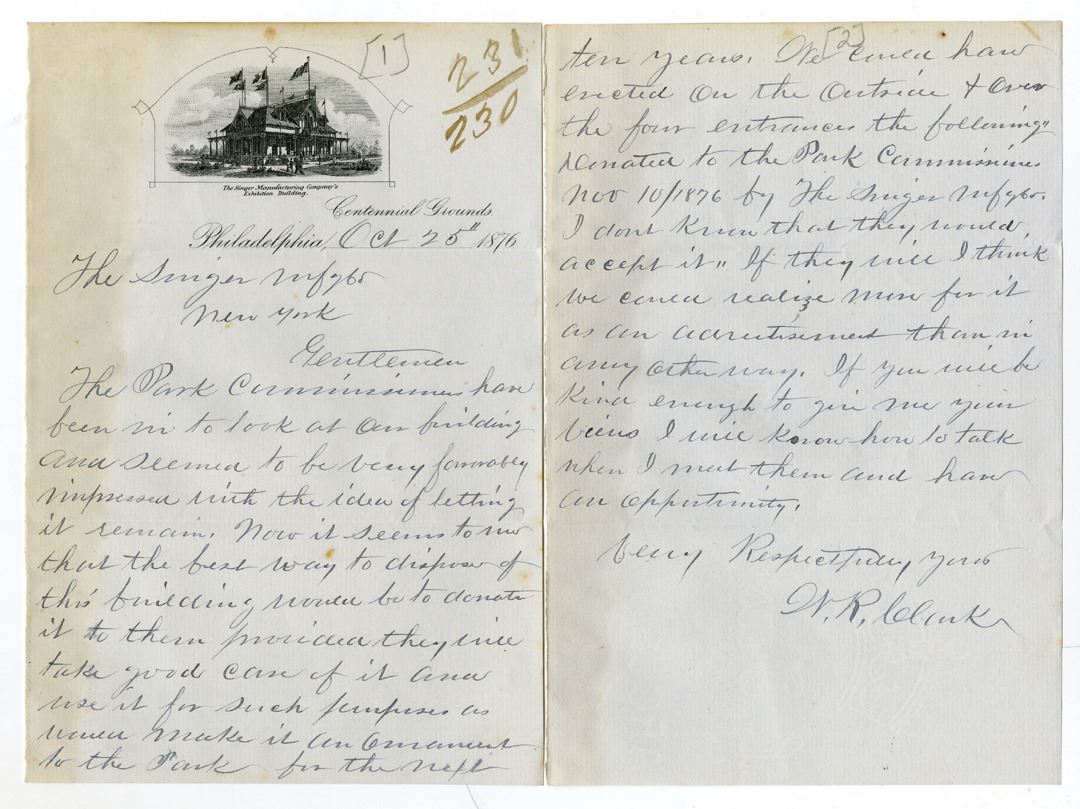 [1]
231
230
The Singer Manufacturing Company's
Exhibition Building.
Centennial Grounds.
Philadelphia, Oct 25" 1876
The Singer Mfg Co
New York
Gentlemen
The Park Commissioners have
been in to look at our building
and seemed to be very favorably
impressed with the idea of letting
it remain. Now it seems to me
that the best way to dispose of
this building would be to donate
it to them provided they will
take good care of it and
use it for such purposes as
would make it an Ornament
to the Park for the next
[2]
ten years. We could have
erected on the outside & over
the four entrances the following"
Donated to the Park Commissioners
Nov 10/1876 by The Singer Mfg Co.
I dont know that they would,
accept it" If they will I think
we could realize more for it
as an advertisement than in
any other way. If you will be
kind enough to give me your
views I will know how to talk
when I meet them and have
an opportunity.
Very Respectfully yours
W. R. Clark